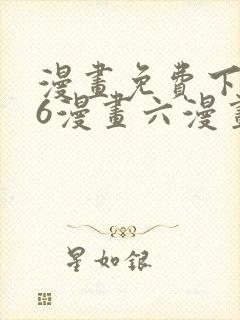 漫畫免費下
6漫畫六漫畫
星如銀